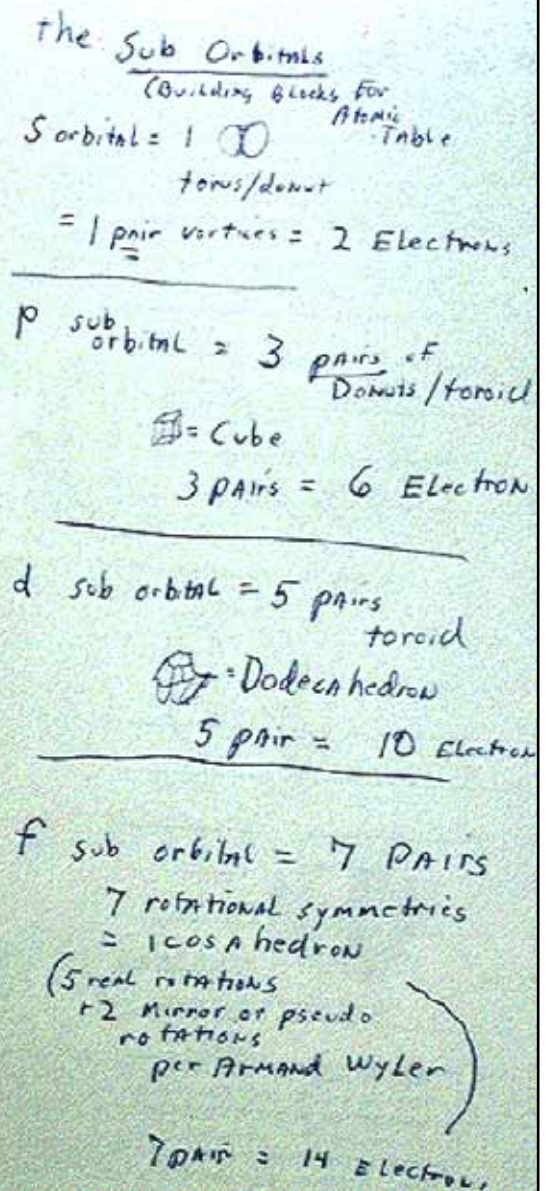 the Sub Orbitals
(Building Blocks For
Atomic
Table
S orbital = 1
torus/donut
= 1 pair vortices = 2 Electrons
p sub
orbital = 3 pairs of
Donuts/toroid
= Cube
3 pairs = 6 Electron
d sub orbital = 5 pairs
toroid
= Dodecahedron
5 pair = 10 Electron
f sub orbital = 7 Pairs
7 rotational symmetries
= icosahedron
(5 real rotations
+2 mirror or pseudo
rotations
per Armand Wyler
7 pair = 14 Electrons